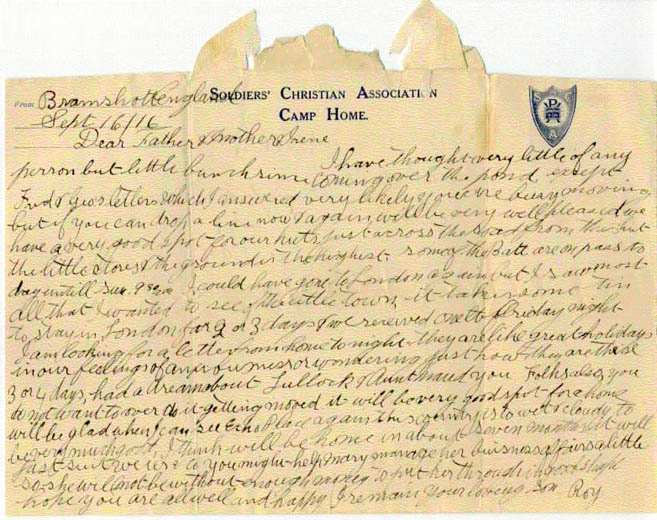 From Bramshott England
SOLDIERS' CHRISTIAN ASSOCIATION
CAMP HOME.
S C A
Sept 16/16
Dear Father & mother & Irene
I have thought very little of any
person but little bunch since coming over the pond except
Fred & Geo's letters which I answered very likely you're busy moving
but if you can drop a line now & again will be very well pleased we
have a very good spot for our huts just across the road from the hut
the little stores & the ground is the highest some of the Batt are on pass to
day until Sun I could have gone to London again but I saw most
all that I wanted to see of the little town, it takes some tin
to stay in London for 2 or 3 days & we received only to Friday night
I am looking for a letter from home to night they are like great holidays
in our feelings of any or wondering just how they are these
3 or 4 days, had a dream about Tullock & Aunt maud & you folks also, you
do not want to over do it getting moved it will be very good spot for a home
will be glad when I can see Echo Place again this country is to wet & cloudy to
be very much good, I think will be home in about seven months it will
just suit we you might help mary manage her buisness affairs a little
so she will not be without enough money to put her through in good shape
hope you are all well and happy I remain your loving son Roy